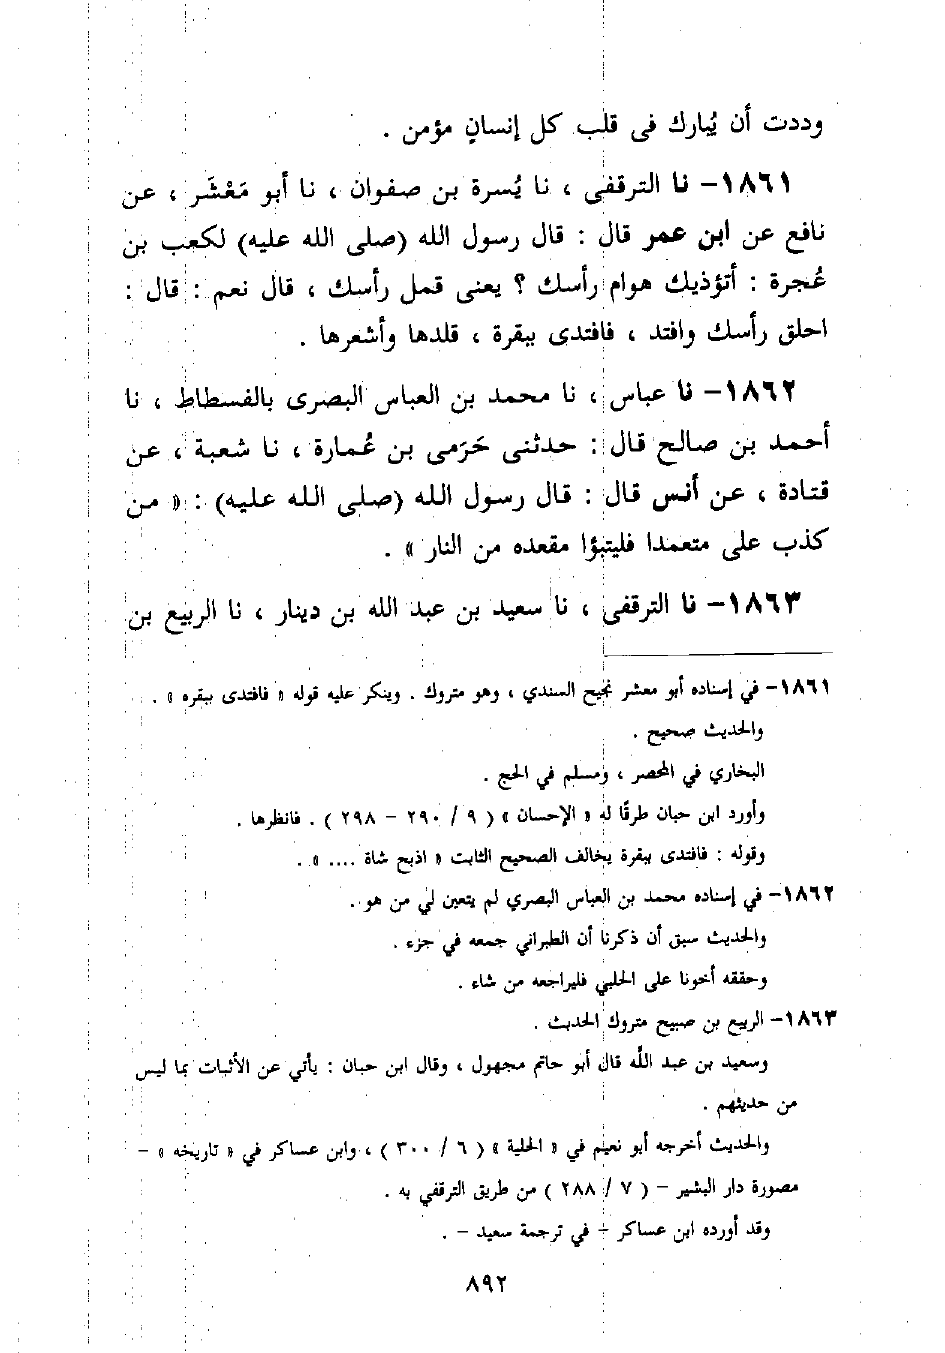 وددت أن يُبارك فى قلب كل إنسانٍ مؤمن .
١٨٦١- نا الترقفى ، نا يُسرة بن صفوان ، نا أبو مَعْشَر ، عن
نافع عن ابن عمر قال : قال رسول الله (صلى الله عليه) لكعب بن
عُجرة : أتؤذيك هوام رأسك ؟ يعنى قمل رأسك ، قال نعم : قال :
احلق رأسك وافتد ، فافتدى ببقرة ، قلدها وأشعرها .
١٨٦٢- نا عباس ، نا محمد بن العباس البصرى بالفسطاط ، نا
أحمد بن صالح قال : حدثنى حَرَمى بن عُمارة ، نا شعبة ، عن
قتادة ، عن أنس قال : قال رسول الله (صلى الله عليه) : « من
كذب على متعمدا فليتبؤا مقعده من النار » .
١٨٦٣- نا الترقفى ، نا سعيد بن عبد الله بن دينار ، نا الربيع بن
١٨٦١- في إسناده أبو معشر نجيح السندي ، وهو متروك . وينكر عليه قوله « فافتدى ببقره » .
والحديث صحيح .
البخاري في المحصر ، ومسلم في الحج .
وأورد ابن حبان طرقًا له « الإحسان » ( ٩ / ٢٩٠ - ٢٩٨ ) . فانظرها .
وقوله : فافتدى ببقرة يخالف الصحيح الثابت « اذبح شاة .... » .
١٨٦٢- في إسناده محمد بن العباس البصري لم يتعين لي من هو .
والحديث سبق أن ذكرنا أن الطبراني جمعه في جزء .
وحققه أخونا على الحلبي فليراجعه من شاء .
١٨٦٣- الربيع بن صبيح متروك الحديث .
وسعيد بن عبد اللَّه قال أبو حاتم مجهول ، وقال ابن حبان : يأتي عن الأثبات بما ليس
من حديثهم .
والحديث أخرجه أبو نعيم في « الحلية » ( ٦ / ٣٠٠ ) ، وابن عساكر في « تاريخه » -
مصورة دار البشير - ( ٧ / ٢٨٨ ) من طريق الترقفي به .
وقد أورده ابن عساكر - في ترجمة سعيد - .
٨٩٢